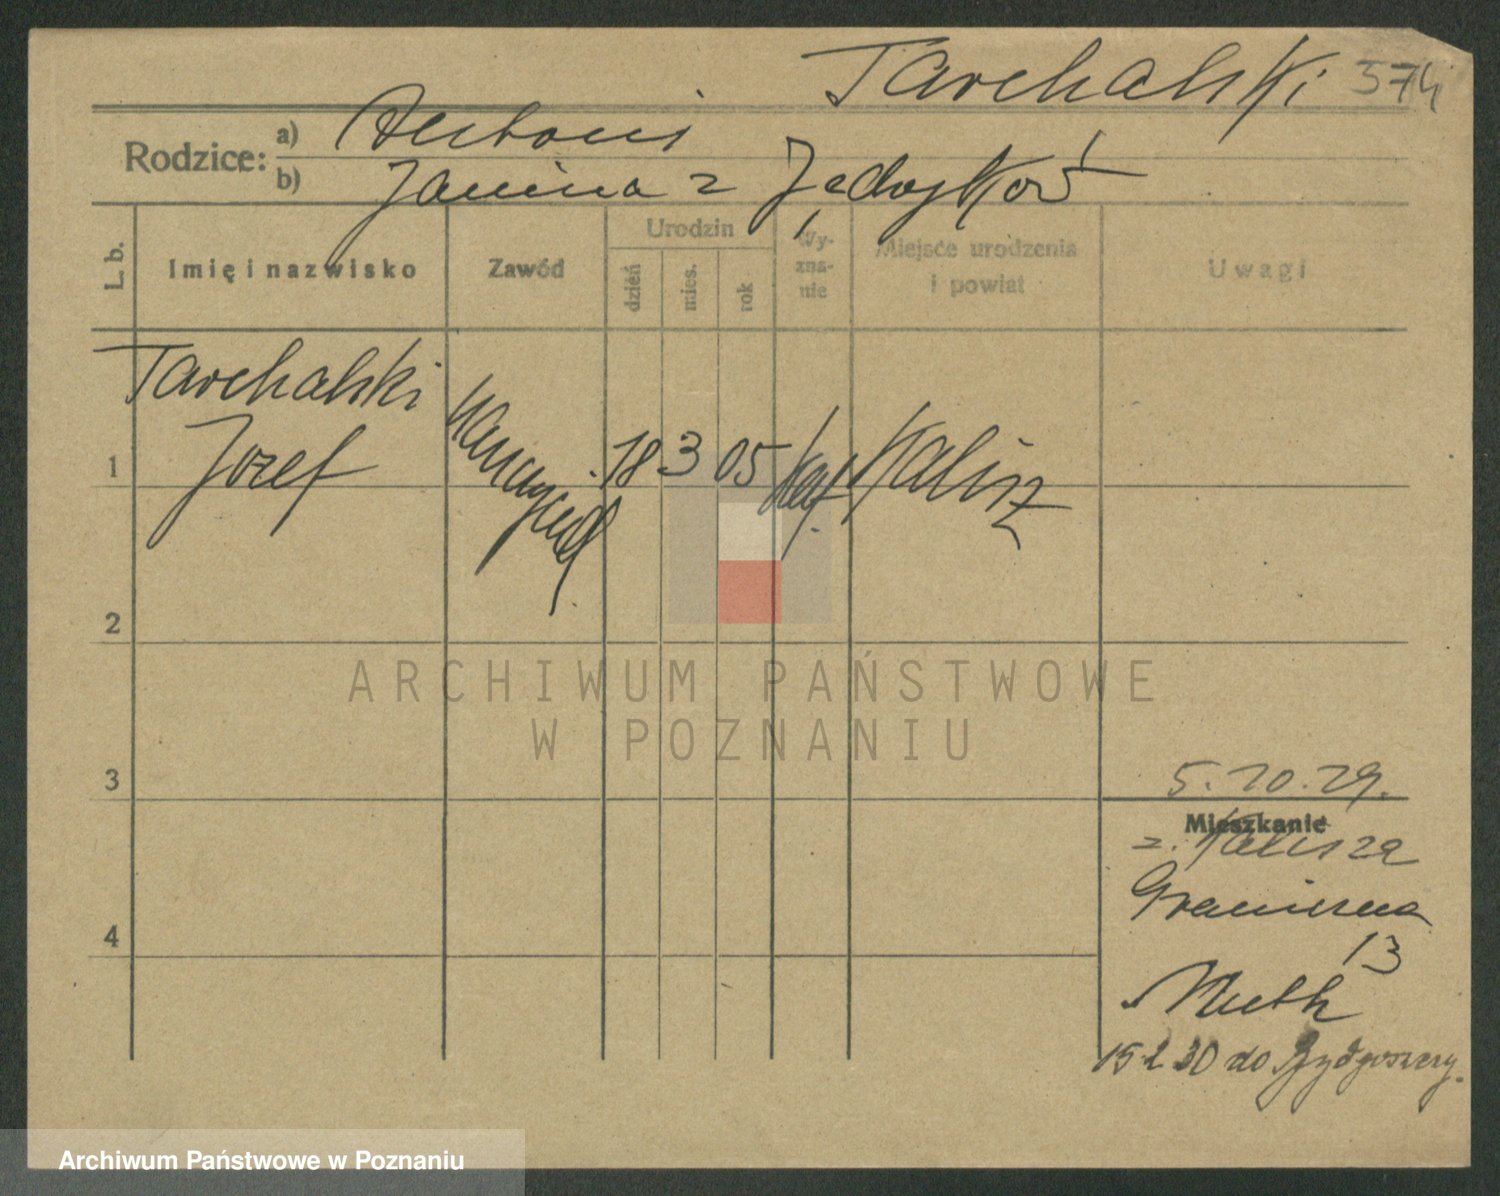 Tarchalski 574
Rodzice: a) Antoni
b) Janina z Jędrysków
L. b.
Imię i nazwisko
Zawód
Urodzin
dzień
mies.
rok
Wy-
zna-
nie
Miejsce urodzenia
i powiat
Uwagi
Tarchalski
Józef
1
18 3 05 kat. Kalisz
2
3
4
5.10.29.
Mieszkanie
z. Kalisza
Graniczna
13
Muth
15 2 30 do Bydgoszczy.
ARCHIWUM PAŃSTWOWE
W POZNANIU
Archiwum Państwowe w Poznaniu